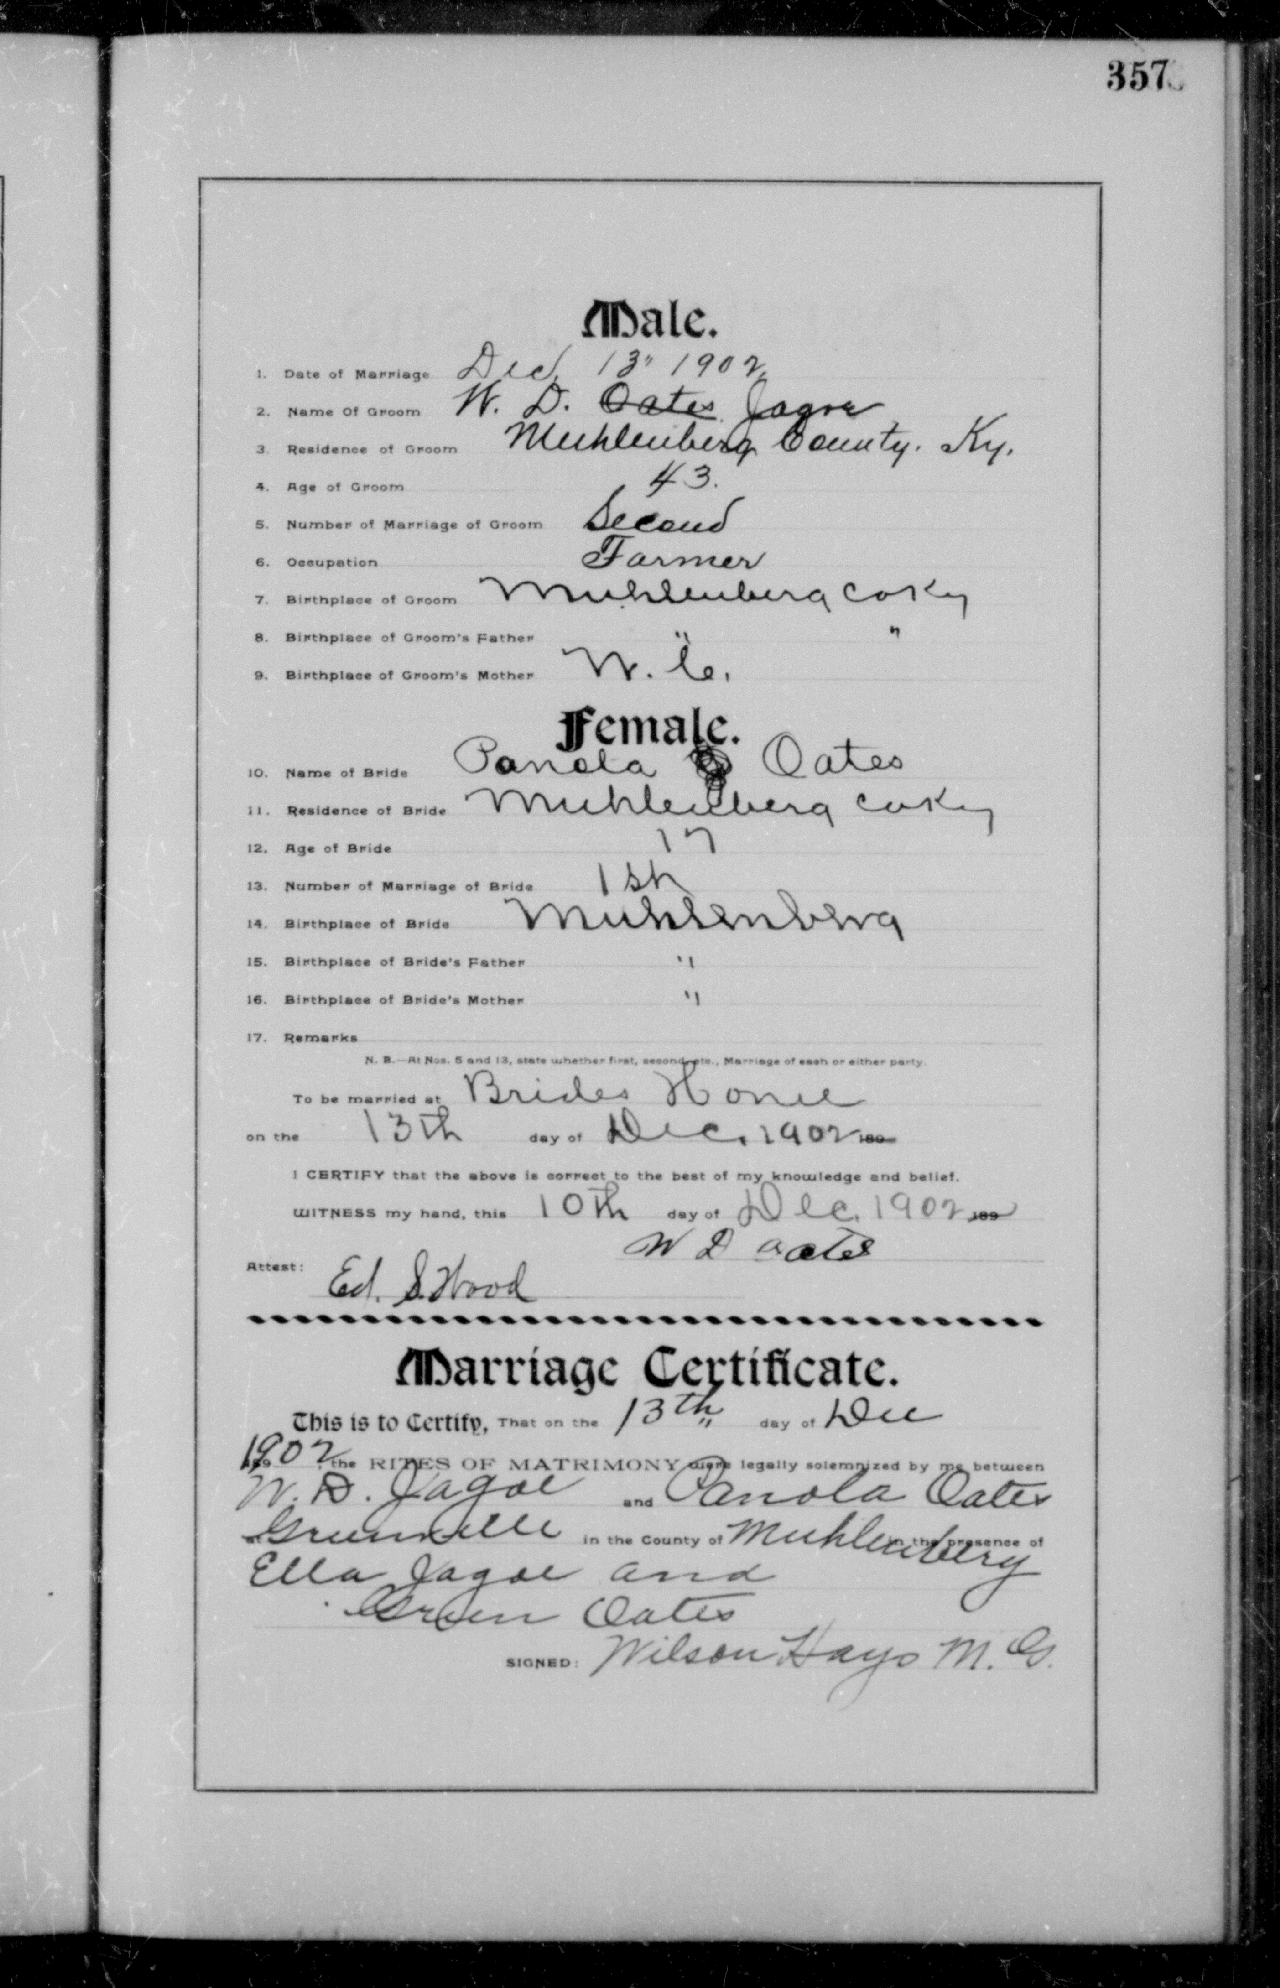 357
Male.
1. Date of Marriage Dec, 13" 1902,
2. Name Of Groom W. D. Oates Jagoe
3. Residence of Groom Muhlenberg County. Ky.
4. Age of Groom 43.
5. Number of Marriage of Groom Second
6. Occupation Farmer
7. Birthplace of Groom Muhlenberg Co Ky
8. Birthplace of Groom's Father " "
9. Birthplace of Groom's Mother N. C.
Female.
10. Name of Bride Panola Oates
11. Residence of Bride Muhlenberg Co Ky
12. Age of Bride 17
13. Number of Marriage of Bride 1st
14. Birthplace of Bride Muhlenberg
15. Birthplace of Bride's Father "
16. Birthplace of Bride's Mother "
17. Remarks
N. B.—At Nos. 5 and 13, state whether first, second, etc., Marriage of each or either party.
To be married at Brides Home
on the 13th day of Dec. 1902 189
I CERTIFY that the above is correct to the best of my knowledge and belief.
WITNESS my hand, this 10th day of Dec. 1902 189
W D Oates
Attest: Ed. S. Wood
Marriage Certificate.
This is to Certify, That on the 13th day of Dec
1902, the RITES OF MATRIMONY were legally solemnized by me between
W. D. Jagoe and Panola Oates
at Greenville in the County of Muhlenberg in the presence of
Ella Jagoe and
Green Oates
SIGNED: Wilson Hays M. G.